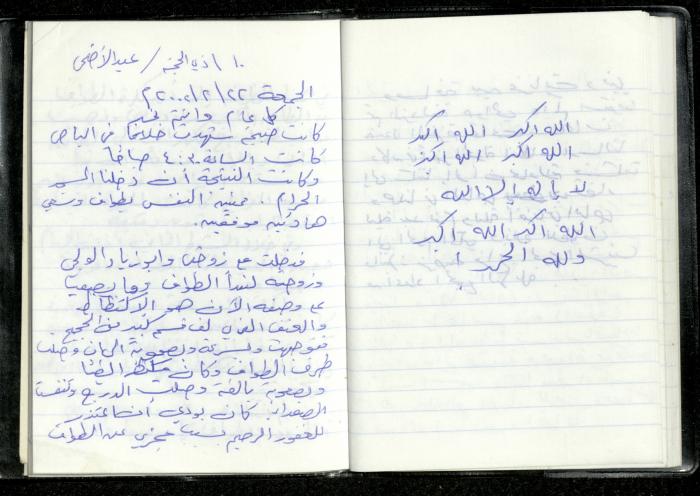 ١٠ / ذي الحجة / عيد الأضحى
الجمعة ٢٢ / ٢ / ٢٠٠٢م
كل عام وأنتم بخير
كانت صبيحة شهدت خلافًا في الباص
كانت الساعة ٤:٣٠ صباحًا
وكانت النتيجة أن دخلنا
الحرام .. ممنية النفس بطواف وسعي
هادئيه موفقيه.
فدخلت مع زوجتي وابو زياد الولي
وزوجته لنبدأ الطواف وما يصعب
على وصفه الآن هو الاكتظاظ
والعنف الذي لف قسم كبير من الحجيج
فتوجهت وبسرعة وبصعوبة وصلت
طرف الطواف وكان مكتظ ايضًا
وبصعوبة بالغة وصلت الدرج وتنفست
الصعداء. كان بودي أن اعتذر
للغفور الرحيم بسبب عجزي عن الطواف
الله اكبر الله اكبر
الله اكبر الله اكبر
لا إله إلا الله
الله اكبر الله اكبر
ولله الحمد